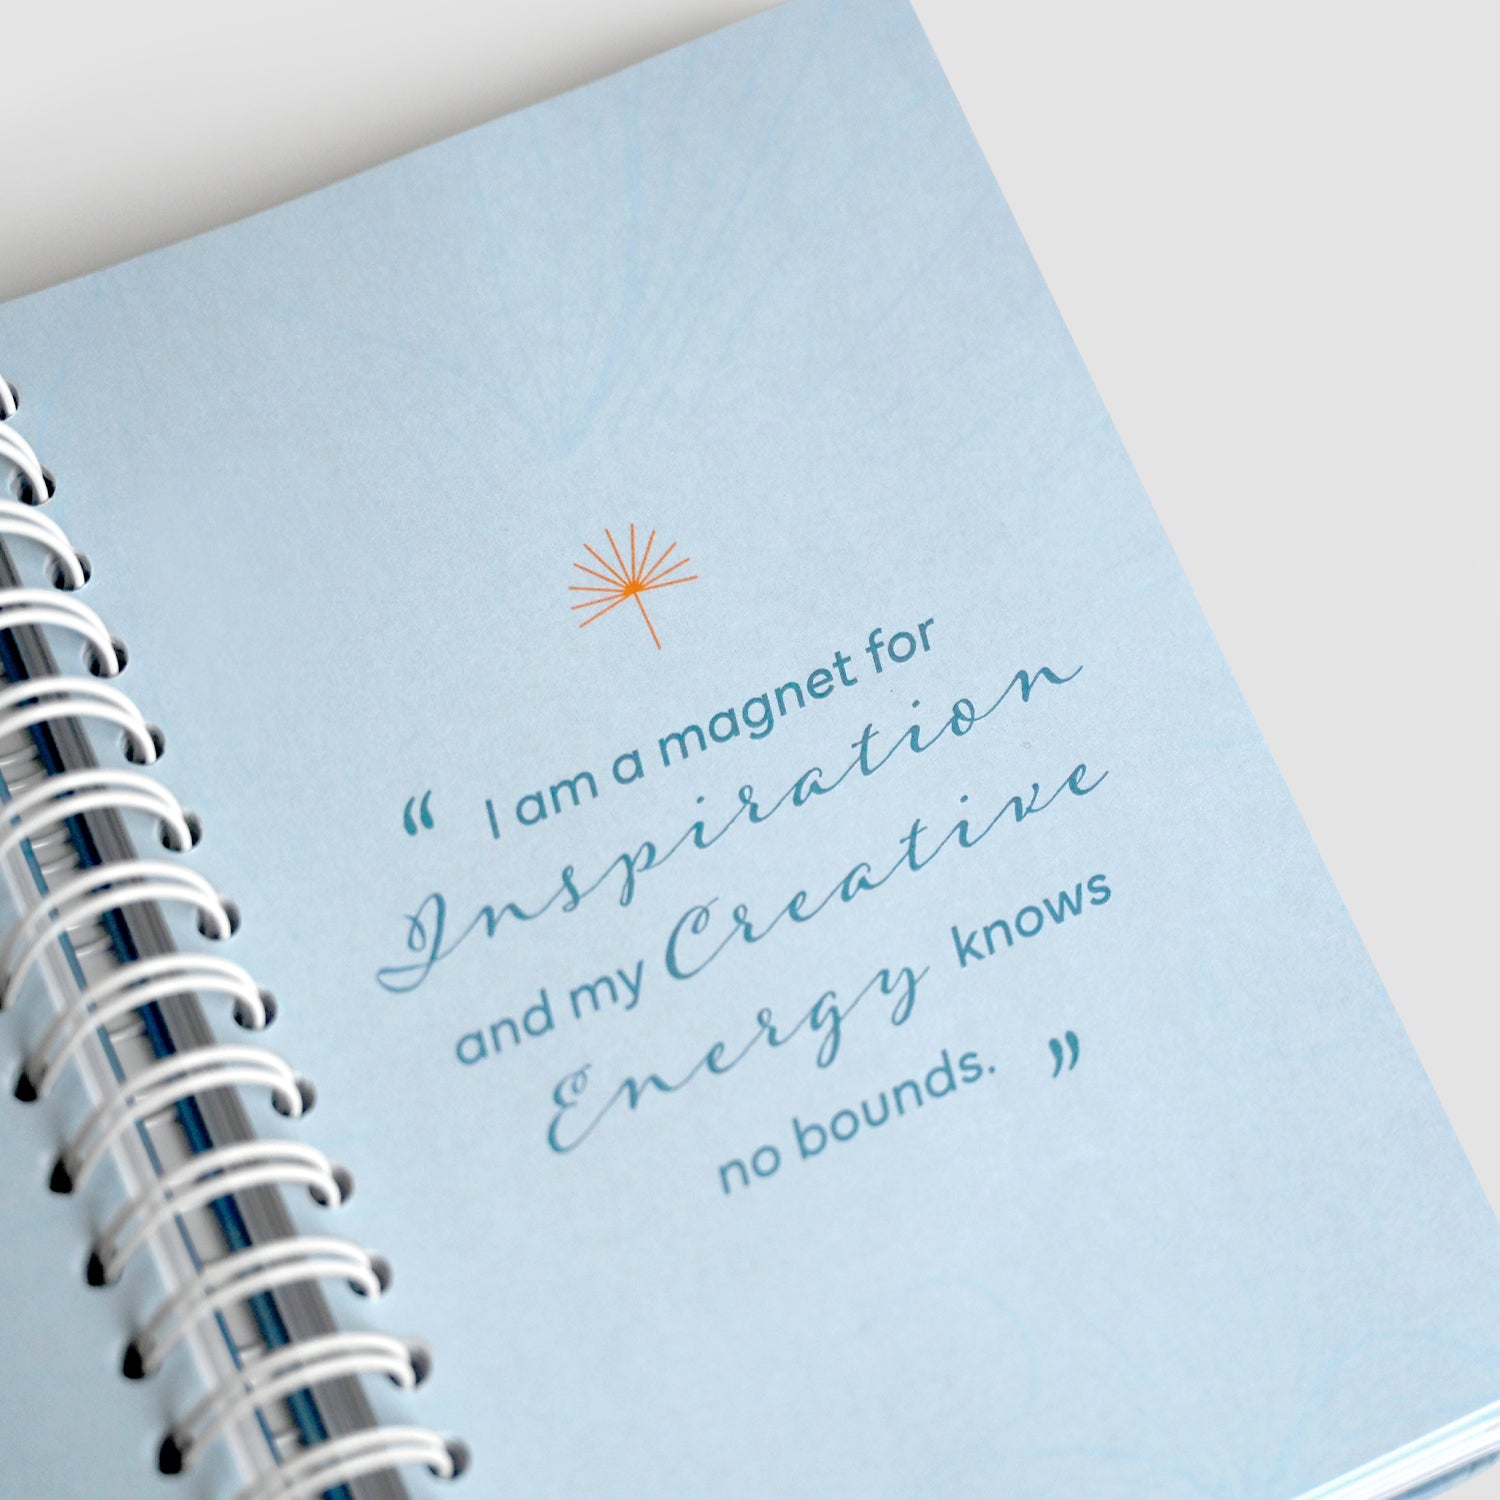 “ I am a magnet for
Inspiration
and my Creative
Energy knows
no bounds. ”